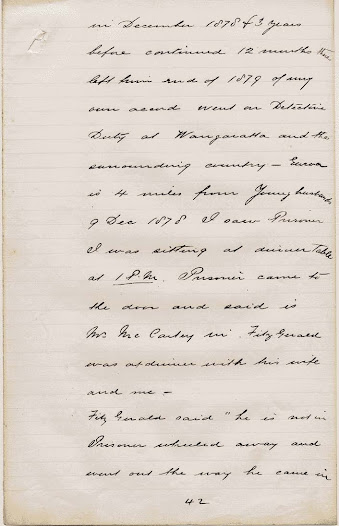 in December 1878 & 3 years
before continued 12 months then
left him end of 1879 of my
own accord went on Detective
Duty at Wangaratta and the
surrounding country – Euroa
is 4 miles from Younghusbands
9 Dec 1878 I saw Prisoner
I was sitting at dinner Table
at 1 P.M. Prisoner came to
the door and said is
Mr McCauley in. FitzGerald
was at dinner with his wife
and me –
FitzGerald said "he is not in
Prisoner wheeled away and
went out the way he came in
42